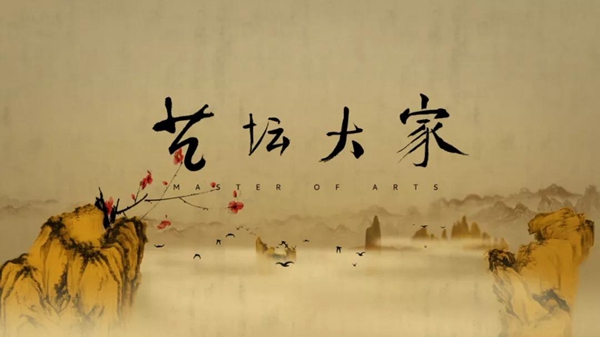 艺坛大家
MASTER OF ARTS